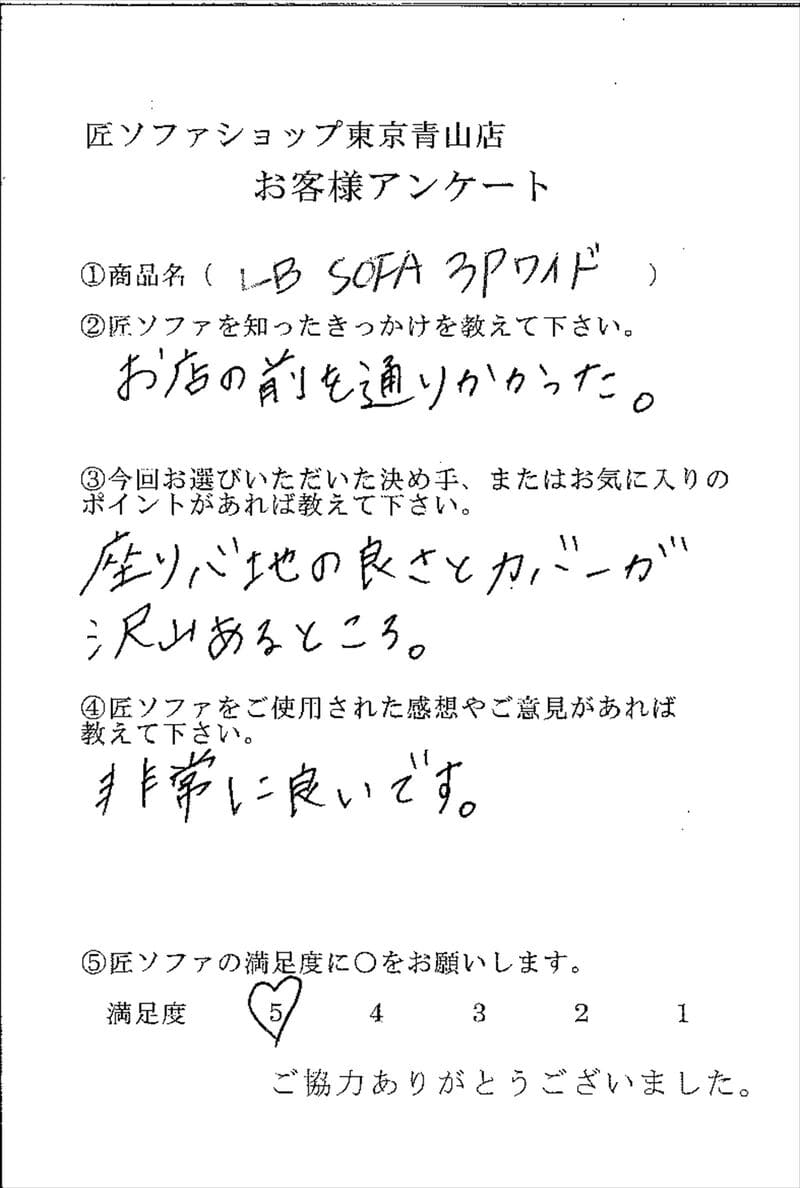 匠ソファショップ東京青山店
お客様アンケート
①商品名（ LB SOFA 3Pワイド ）
②匠ソファを知ったきっかけを教えて下さい。
お店の前を通りかかった。
③今回お選びいただいた決め手、またはお気に入りの
ポイントがあれば教えて下さい。
座り心地の良さとカバーが
沢山あるところ。
④匠ソファをご使用された感想やご意見があれば
教えて下さい。
非常に良いです。
⑤匠ソファの満足度に〇をお願いします。
満足度 5 4 3 2 1
ご協力ありがとうございました。